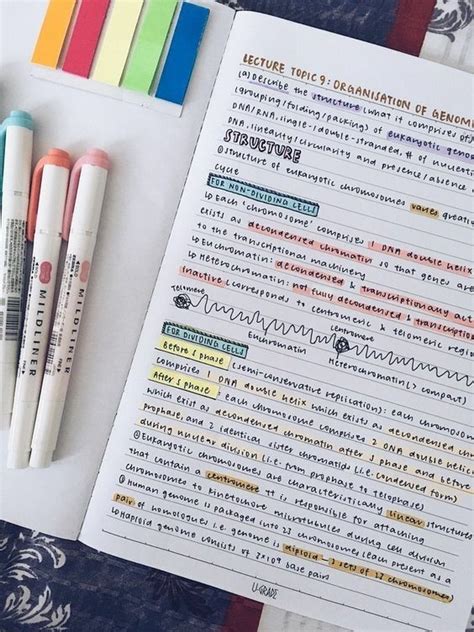 LECTURE TOPIC 9: ORGANISATION OF GENOM
(a) Describe the structure (what it comprises of
(grouping/folding/packings of eukaryotic
DNA/RNA, single-/double-stranded, # of
DNA, linearity/circularity and presence/absence
STRUCTURE
structure of eukaryotic chromosomes varies
cycle
FOR NON-DIVIDING CELLS
↳ Each 'chromosome' comprises 1 DNA double helix
exists as decondensed chromatin so that genes are
to the transcriptional machinery
↳ Euchromatin: decondensed & transcriptionally act
↳ Heterochromatin: not fully decondensed & transcription
Inactive (corresponds to centromeric & telomeric
Telomere
centromere
Euchromatin
Heterochromatin (> compact)
FOR DIVIDING CELLS
Before S phase (semi-conservative replication): each chromos
comprise 1 DNA double helix which exists as decondensed
After S phase: each chromosome comprises 2 DNA double
which exist as decondensed chromatin after S phase and before
prophase, and 2 identical sister chromatids (i.e. condensed form)
during nuclear division (i.e. from prophase to telophase)
Eukaryotic chromosomes are characteristically linear structures
that contain a centromere. It is responsible for attaching
chromosomes to kinetochore microtubules during cell division
Human genome is packaged into 23 chromosomes (each present as a
pair of homologues i.e. genome is diploid - 2 sets of 23 chromosomes)
↳ Haploid genome consists of 3×109 base pairs
U-GRADE
MILDLINER
MILDLINER